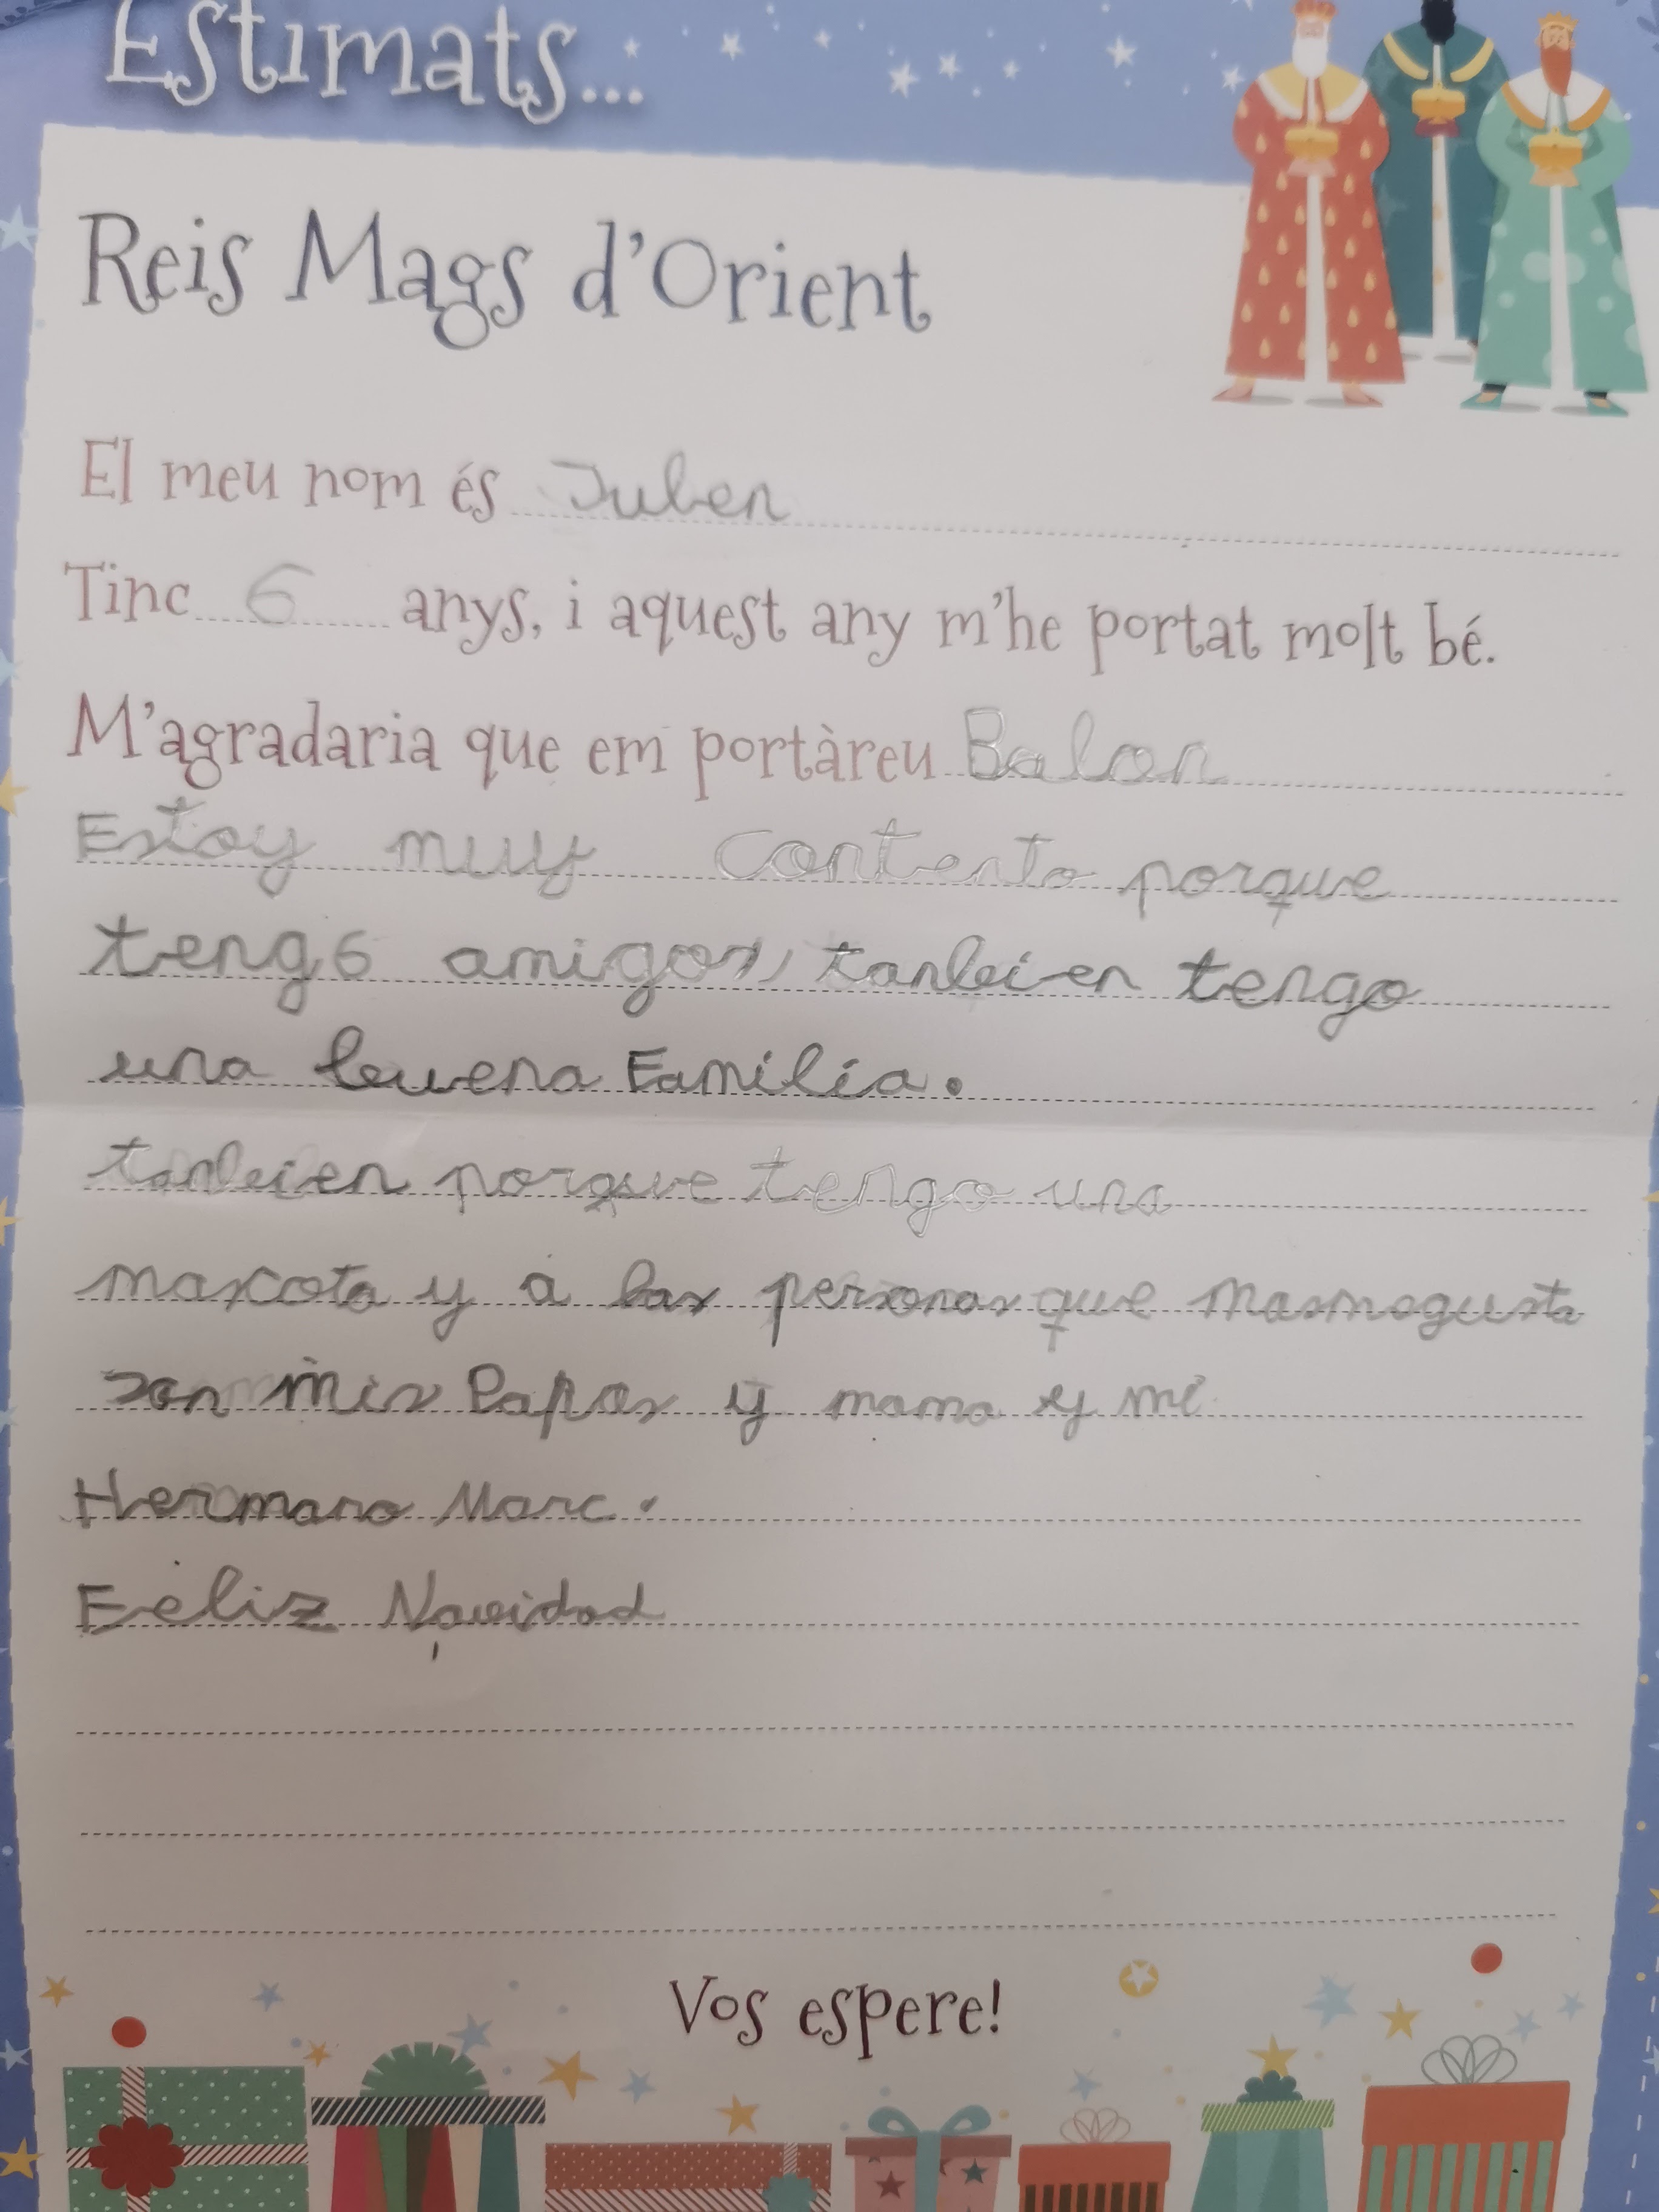 Estimats...
Reis Mags d'Orient
El meu nom és Juben
Tinc 6 anys, i aquest any m'he portat molt bé.
M'agradaria que em portàreu Balon
Estoy muy contento porque
tengo amigos, tanbien tengo
una buena Familia.
tanbien porque tengo una
mascota y a las personas que masmegusta
son mis Papas y mama y mi
Hermano Marc.
Feliz Navidad
Vos espere!